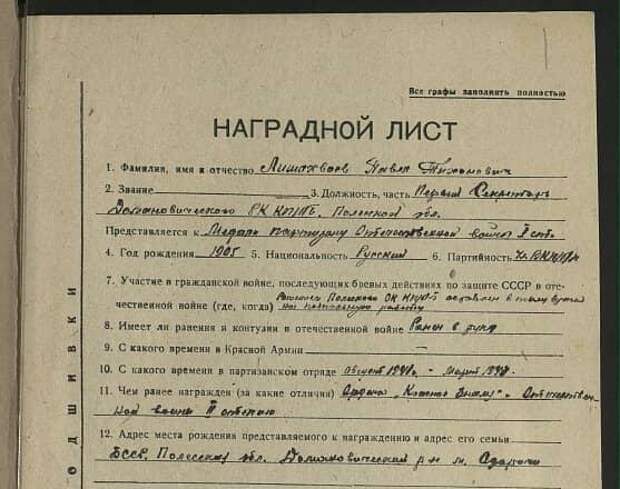 Все графы заполнить полностью
НАГРАДНОЙ ЛИСТ
1. Фамилия, имя и отчество Павел Тихонович
2. Звание 3. Должность, часть Первый Секретарь
Домановического РК КП/б/Б, Полесской обл.
Представляется к Медали партизану Отечественной войны I степ.
4. Год рождения 1905 5. Национальность Русский 6. Партийность
7. Участие в гражданской войне, последующих боевых действиях по защите СССР и оте-
чественной войне (где, когда) Решением Полесского ОК КП/б/Б оставлен в тылу врага
на подпольную работу
8. Имеет ли ранения и контузии в отечественной войне Ранен в руку
9. С какого времени в Красной Армии —
10. С какого времени в партизанском отряде август 1941г. – март
11. Чем ранее награжден (за какие отличия) Ордена „Красное Знамя“ Отечествен-
ной войны II степени
12. Адрес места рождения представляемого к награждению и адрес его семьи
БССР, Полесская обл. Домановический р-н м.
ОДШИВКИ